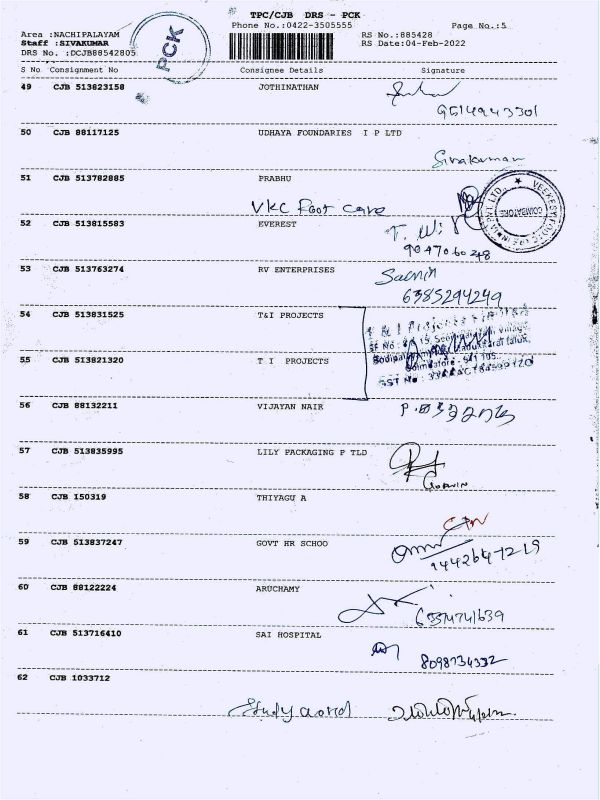 TPC/CJB DRS - PCK
Phone No.:0422-3505555
Page No.:5
Area :NACHIPALAYAM
Staff :SIVAKUMAR
DRS No. :DCJB88542805
PCK
RS No.:885428
RS Date:04-Feb-2022
S No Consignment No Consignee Details Signature
49 CJB 513823158 JOTHINATHAN
9514943301
50 CJB 88117125 UDHAYA FOUNDARIES I P LTD
Sivakumar
51 CJB 513782885 PRABHU
VKC Foot care
COIMBATORE
52 CJB 513815583 EVEREST
9047060248
53 CJB 513763274 RV ENTERPRISES
6385294249
54 CJB 513831525 T&I PROJECTS
55 CJB 513821320 T I PROJECTS
Coimbatore - 641 105.
GST No :
56 CJB 88132211 VIJAYAN NAIR
57 CJB 513835995 LILY PACKAGING P TLD
58 CJB 150319 THIYAGU A
59 CJB 513837247 GOVT HR SCHOO
60 CJB 88122224 ARUCHAMY
61 CJB 513716410 SAI HOSPITAL
8098734332
62 CJB 1033712
Study world